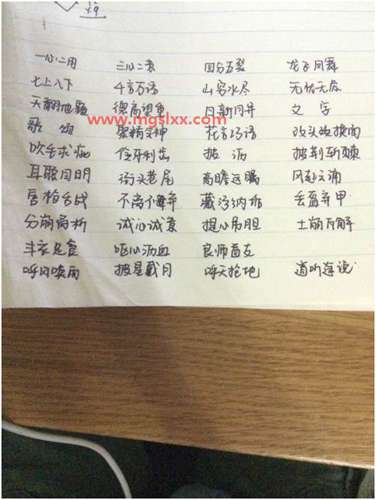 一心二用 三心二意 四分五裂 龙飞凤舞
七上八下 千言万语 山穷水尽 无忧无虑
天翻地覆 德高望重 日新月异 文字
歌颂 聚精会神 花言巧语 改头换面
www.mgslxx.com
吹毛求疵 伶牙利齿 披沥 披荆斩棘
耳聪目明 街头巷尾 高瞻远瞩 风起云涌
唇枪舌战 不屑置辩 藏污纳垢 丢盔弃甲
分崩离析 诚心诚意 提心吊胆 土崩瓦解
丰衣足食 呕心沥血 良师益友
呼风唤雨 披星戴月 呼天抢地 道听途说